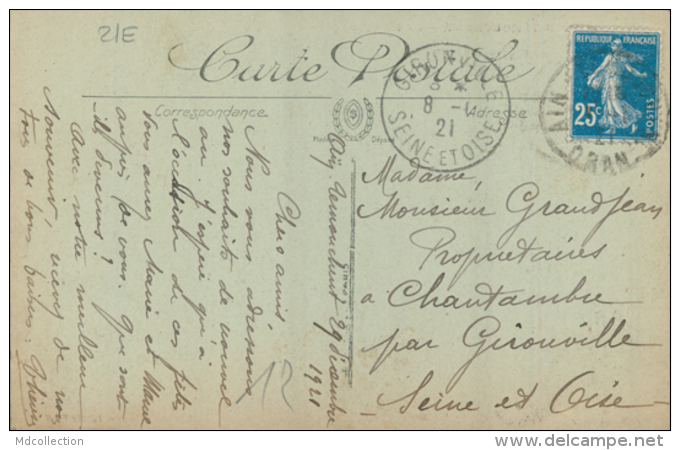 21E
Carte Postale
Correspondance
Adresse
REPUBLIQUE FRANÇAISE
25c
POSTES
GIRONVILLE
8 *
8 -1
21
SEINE ET OISE
AIN
ORAN
Aïn Temouchent 29 décembre
1921
Chers amis
Nous vous adressons
nos souhaits de nouvel
an. J'espère qu'à
l'occasion de ces fêtes
vous aurez Marie et
auprès de vous. Que sont
-ils devenus?
Avec notre meilleur
souvenir, recevez de nous
tous de bons baisers.
Madame,
Monsieur Grandjean
Propriétaires
à Chantambre
par Gironville
Seine et Oise
12
Mdcollection
www.delcampe.net